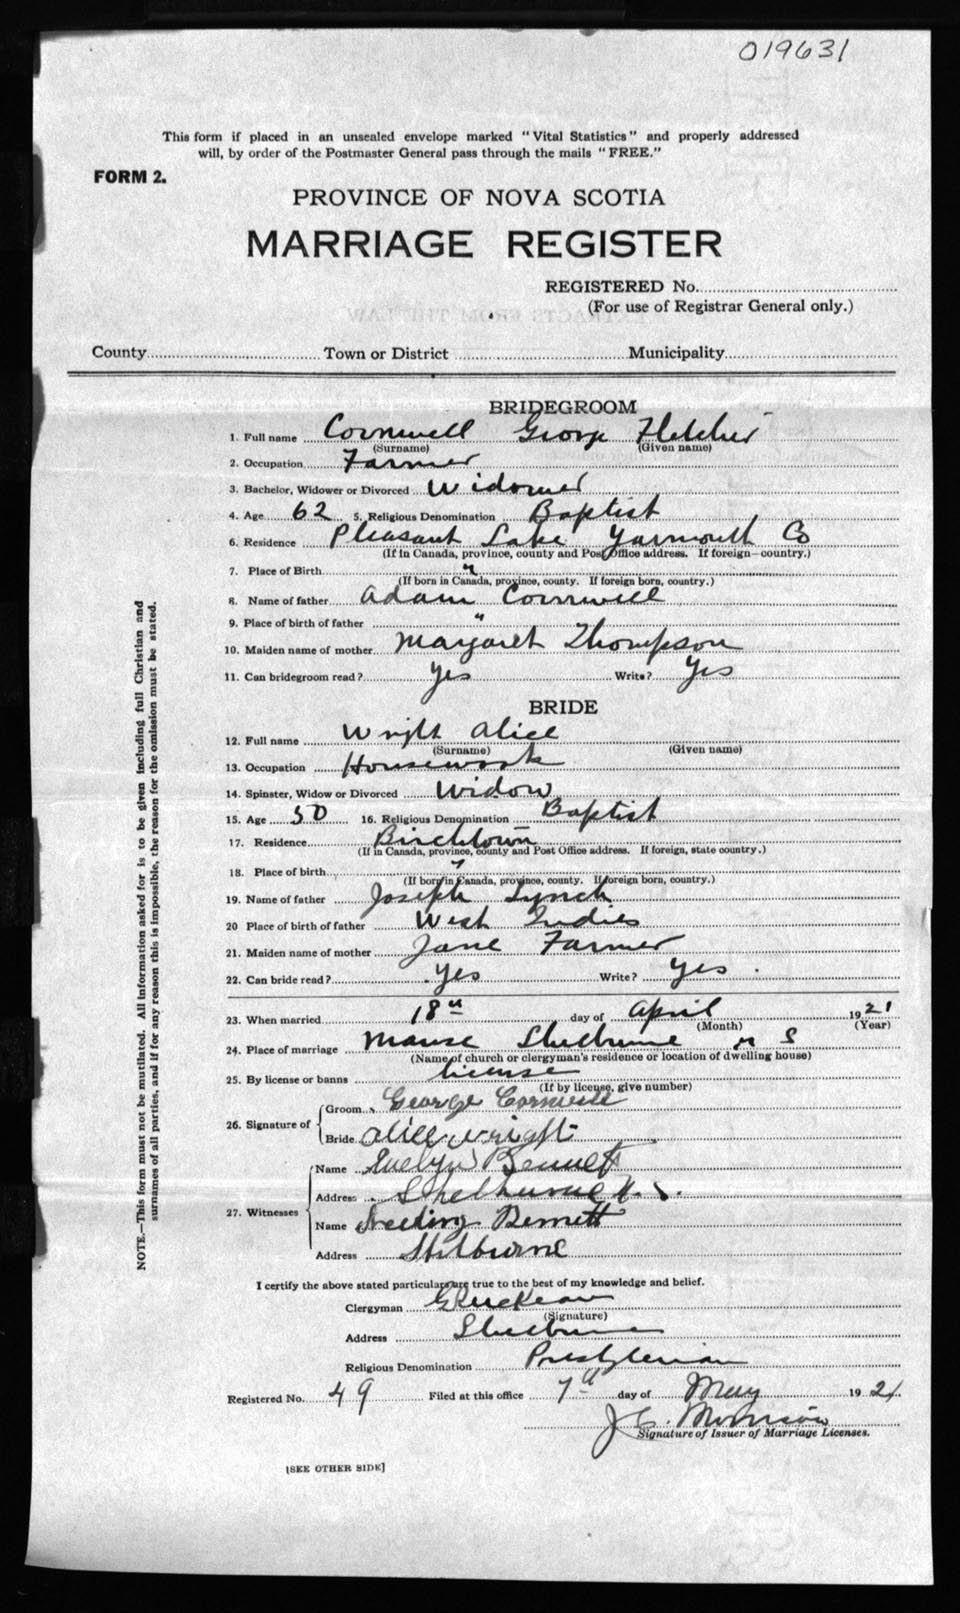 019631
This form if placed in an unsealed envelope marked "Vital Statistics" and properly addressed
will, by order of the Postmaster General pass through the mails "FREE."
FORM 2.
PROVINCE OF NOVA SCOTIA
MARRIAGE REGISTER
REGISTERED No.
(For use of Registrar General only.)
County Town or District Municipality
BRIDEGROOM
1. Full name Cornwell George Fletcher
(Surname) (Given name)
2. Occupation Farmer
3. Bachelor, Widower or Divorced Widower
4. Age 62 5. Religious Denomination Baptist
6. Residence Pleasant Lake Yarmouth Co
(If in Canada, province, county and Post Office address. If foreign—country.)
7. Place of Birth "
(If born in Canada, province, county. If foreign born, country.)
8. Name of father Adam Cornwell
9. Place of birth of father "
10. Maiden name of mother Margaret Thompson
11. Can bridegroom read? Yes Write? Yes
BRIDE
12. Full name Wright Alice
(Surname) (Given name)
13. Occupation Housework
14. Spinster, Widow or Divorced Widow
15. Age 50 16. Religious Denomination Baptist
17. Residence Birchtown
(If in Canada, province, county and Post Office address. If foreign, state country.)
18. Place of birth "
(If born in Canada, province, county. If foreign born, country.)
19. Name of father Joseph Lynch
20 Place of birth of father West Indies
21. Maiden name of mother Jane Farmer
22. Can bride read? Yes Write? Yes
23. When married 18th day of April 1921
(Month) (Year)
24. Place of marriage Manse Shelburne N S
(Name of church or clergyman's residence or location of dwelling house)
25. By license or banns license
(If by license, give number)
26. Signature of Groom George Cornwell
Bride Alice Wright
27. Witnesses Name Evelyn Bennett
Address Shelburne N. S.
Name Bennett
Address Shelburne
I certify the above stated particulars are true to the best of my knowledge and belief.
Clergyman
(Signature)
Address Shelburne
Religious Denomination Presbyterian
Registered No. 49 Filed at this office 7th day of May 1921
J C. Morrison
Signature of Issuer of Marriage Licenses.
[SEE OTHER SIDE]
NOTE.—This form must not be mutilated. All information asked for is to be given including full Christian and
surnames of all parties, and if for any reason this is impossible, the reason for the omission must be stated.